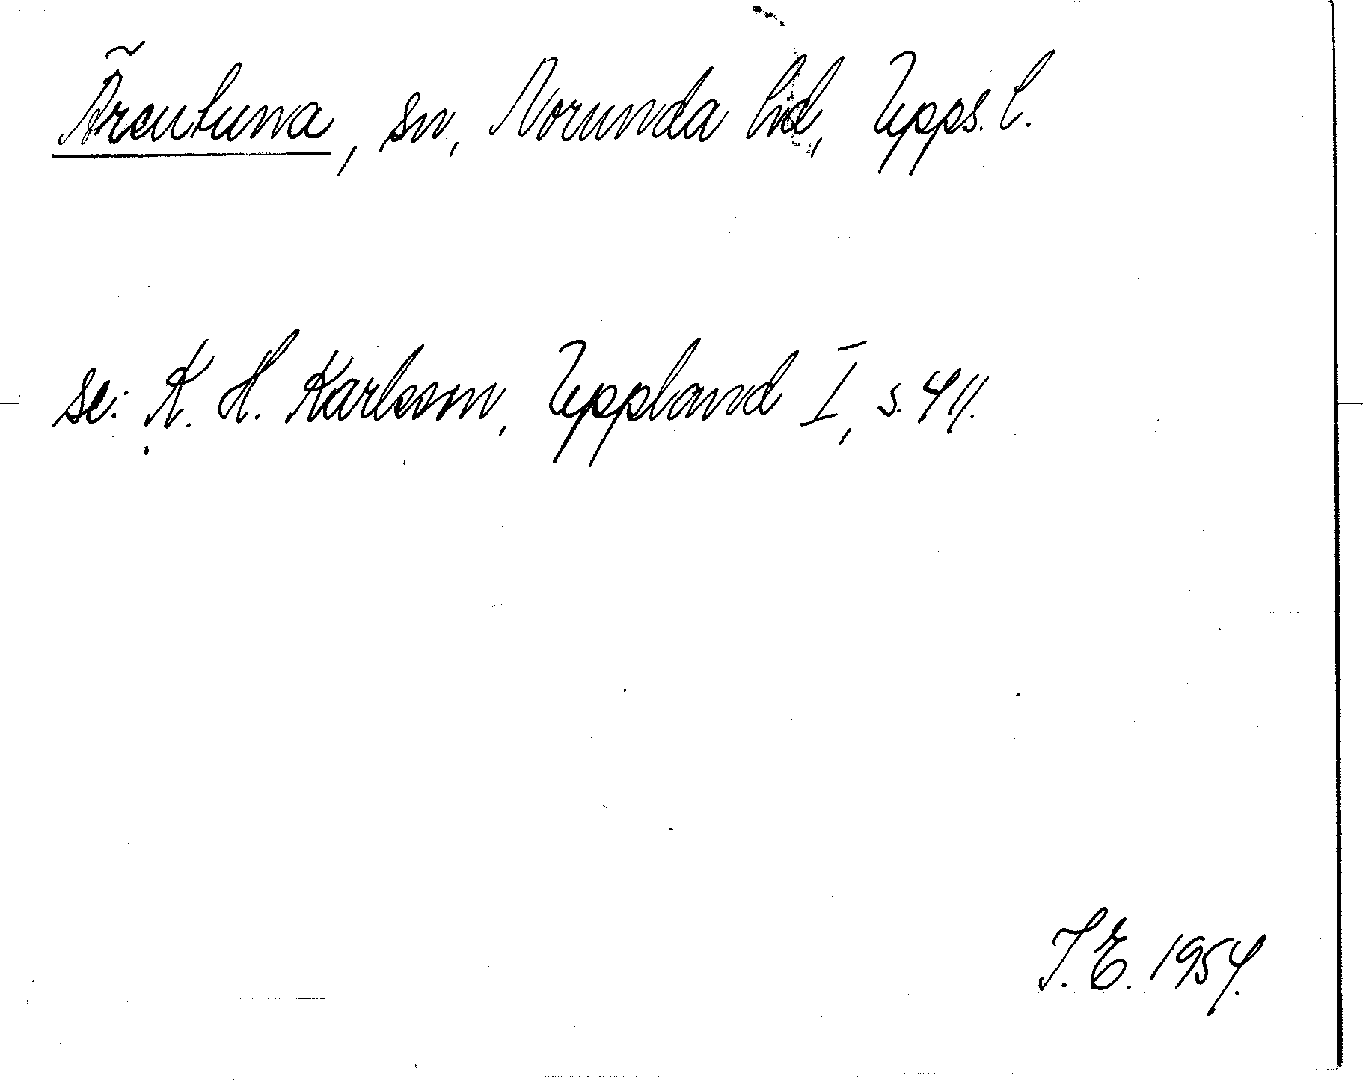 Ärentuna, sn, Norunda hd, Upps. l.
se: K. H. Karlsson, Uppland I, s. 411.
I. E. 1954.